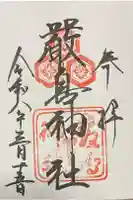 奉拝
厳島神社
令和八年三月十五日